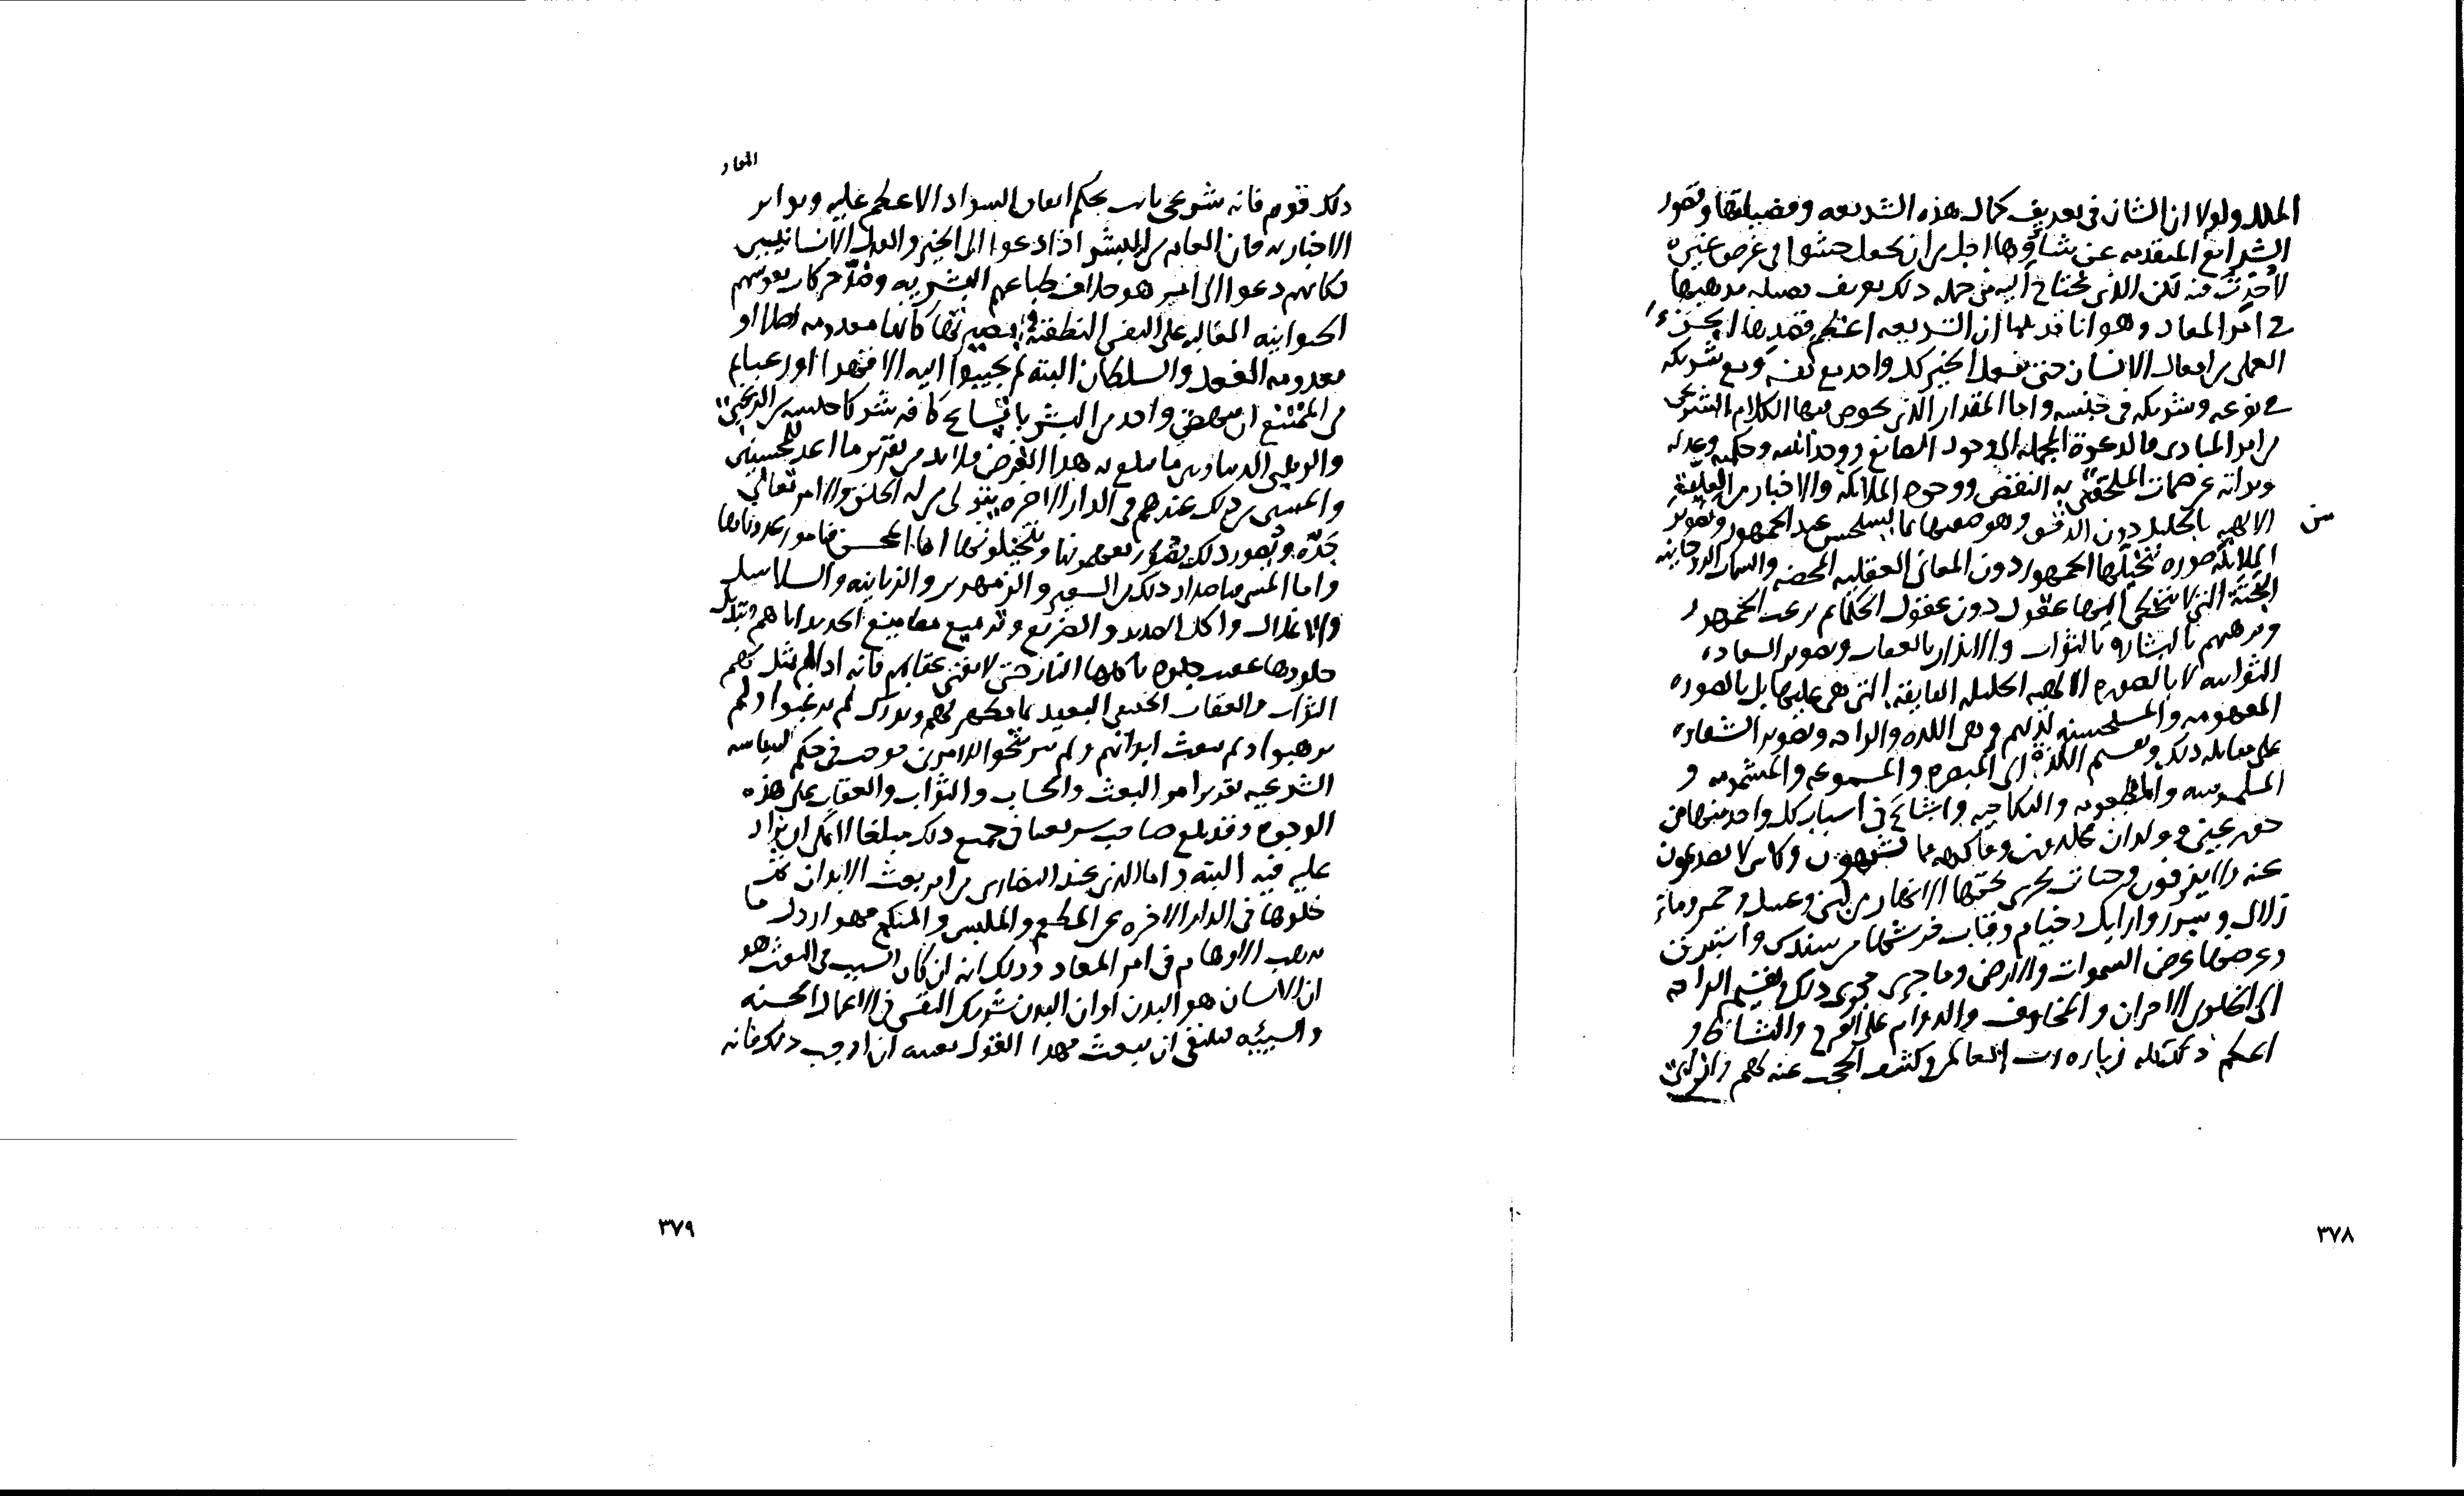 الملل ولولا ان الشان فى تعريف كمال هذه الشريعه وفضيلتها وقصور
الشرائع المتقدمه عن شاوها اجل من ان يجعل حشوا فى غرض غيره
لاخذت فيه لكن الذى نحتاج اليه من جمله ذلك تعريف فضيله مذهبها
فى امر المعاد وهو انا قد علمنا ان الشريعه اعظم قصدها الجزء
العملى من افعال الانسان حتى يفعل الخير كل واحد مع نفسه ومع شريكه
فى نوعه وشريكه فى جنسه واما المقدار الذى يخوض فيها الكلام الشرعى
من امر المبادى فالدعوة الجمله الى وجود الصانع ووحدانيته وحكمته وعدله
وبراته عن صفات الملحقة به النقص ووجود الملائكه والاخبار من العليه
الالهيه بالجليل دون الدقيق وهو صفتها بما يستحسن عند الجمهور وتصوير
الملائكه صوره تتخيلها الجمهور دون المعانى العقليه المحضه والسمات الروحانيه
البحتة التى لا تتخطى اليها عقول دون عقول الحكماء ثم ترغيب الجمهور
وترهيبهم بالبشاره بالثواب والانذار بالعقاب وتصوير السعاده
الثوابيه لا بالصوره الالهيه الجليله الفايقه التى هى عليها بل بالصوره
المفهومه والمستحسنه لديهم وهى اللذه والراحه وتصوير الشقاوه
على مقابله ذلك وتقسيم اللذة الى المبصره والمسموعه والمشمومه و
الملموسه والمطعومه والنكاحيه واشباع فى اسباب كل واحد منها من
حور عين وولدان مخلدين وفاكهه مما يشتهون وكاس لا يصدعون
عنه ولا ينزفون وجنات تجرى تحتها الانهار من لبن وعسل وخمر وماء
زلال وسرر وارايك وخيام وقباب فرشها من سندس واستبرق
وعرضها عرض السموات والارض وما جرى مجرى ذلك وتقسيم الراحه
الى الخلو من الاحزان والمخاوف والدوام على الفرح والنشاط و
اعظم ذلك كله زياره رب العالم وكشف الحجب عنه لهم وان ابى
المعاد
ذلك قوم فانه شرعى ثابت بحكم اتفاق السواد الاعظم عليه وتواتر
الاخبار به فان العامه من البشر اذا دعوا الى الخير والعدل الانسانيين
فكانهم دعوا الى امر هو خلاف طباعهم البشريه وضد حركات نفوسهم
الحيوانيه الغالبه على النفس النطقية فى تصييرها كانها معدومه اصلا او
معدومه الفعل والسلطان البته لم يجيبوا اليه الا قهرا او رغبا ثم
من الممتنع ان ينهض واحد من البشر باشباع كافه شركا جنسه من الترغيب
والترهيب الدنياويين ما يبلغ به هذا الغرض فلا بد من تقرير ما اعد للمحسنين
والمسيئين من ذلك عندهم فى الدار الاخره يتولى من له الخلق والامر تعالى
جده وتصور ذلك بصور يفهمونها ويتخيلونها اما المحسن فامور عددناها
واما المسى فاضداد ذلك من السعير والزمهرير والزبانيه والسلاسل
والاغلال واكل الصديد والضريع وتدميع مقامع الحديد اياهم وتبديل
جلودها عقيب جلود ياكلها النار حتى لا يفنى عقابهم فانه اذا لم يمثل لهم
الثواب والعقاب الحقيقى البعيد بما يظهر لهم ويدرك لم يرغبوا ولم
يرهبوا ولم يبعث ابدانهم ولم يترشحوا للامرين فوجب فى حكم السياسه
الشرعيه تقرير امر البعث والحساب والثواب والعقاب على هذه
الوجوه وقد بلغ صاحب شريعتنا فى جميع ذلك مبلغا لا يمكن ان يزاد
عليه فيه البته واما الذى عند النصارى من امر بعث الابدان ثم
خلوها فى الدار الاخره عن المطعم والملبس والمنكح فهو ارذل ما
يذهب الاوهام فى امر المعاد وذلك انه ان كان السبب فى البعث هو
ان الانسان هو البدن او ان البدن شريك النفس فى الاعمال الحسنه
والسيئه فينبغى ان يبعث فهذا القول بعينه ان اوجب ذلك فانه
٣٧٩
٣٧٨